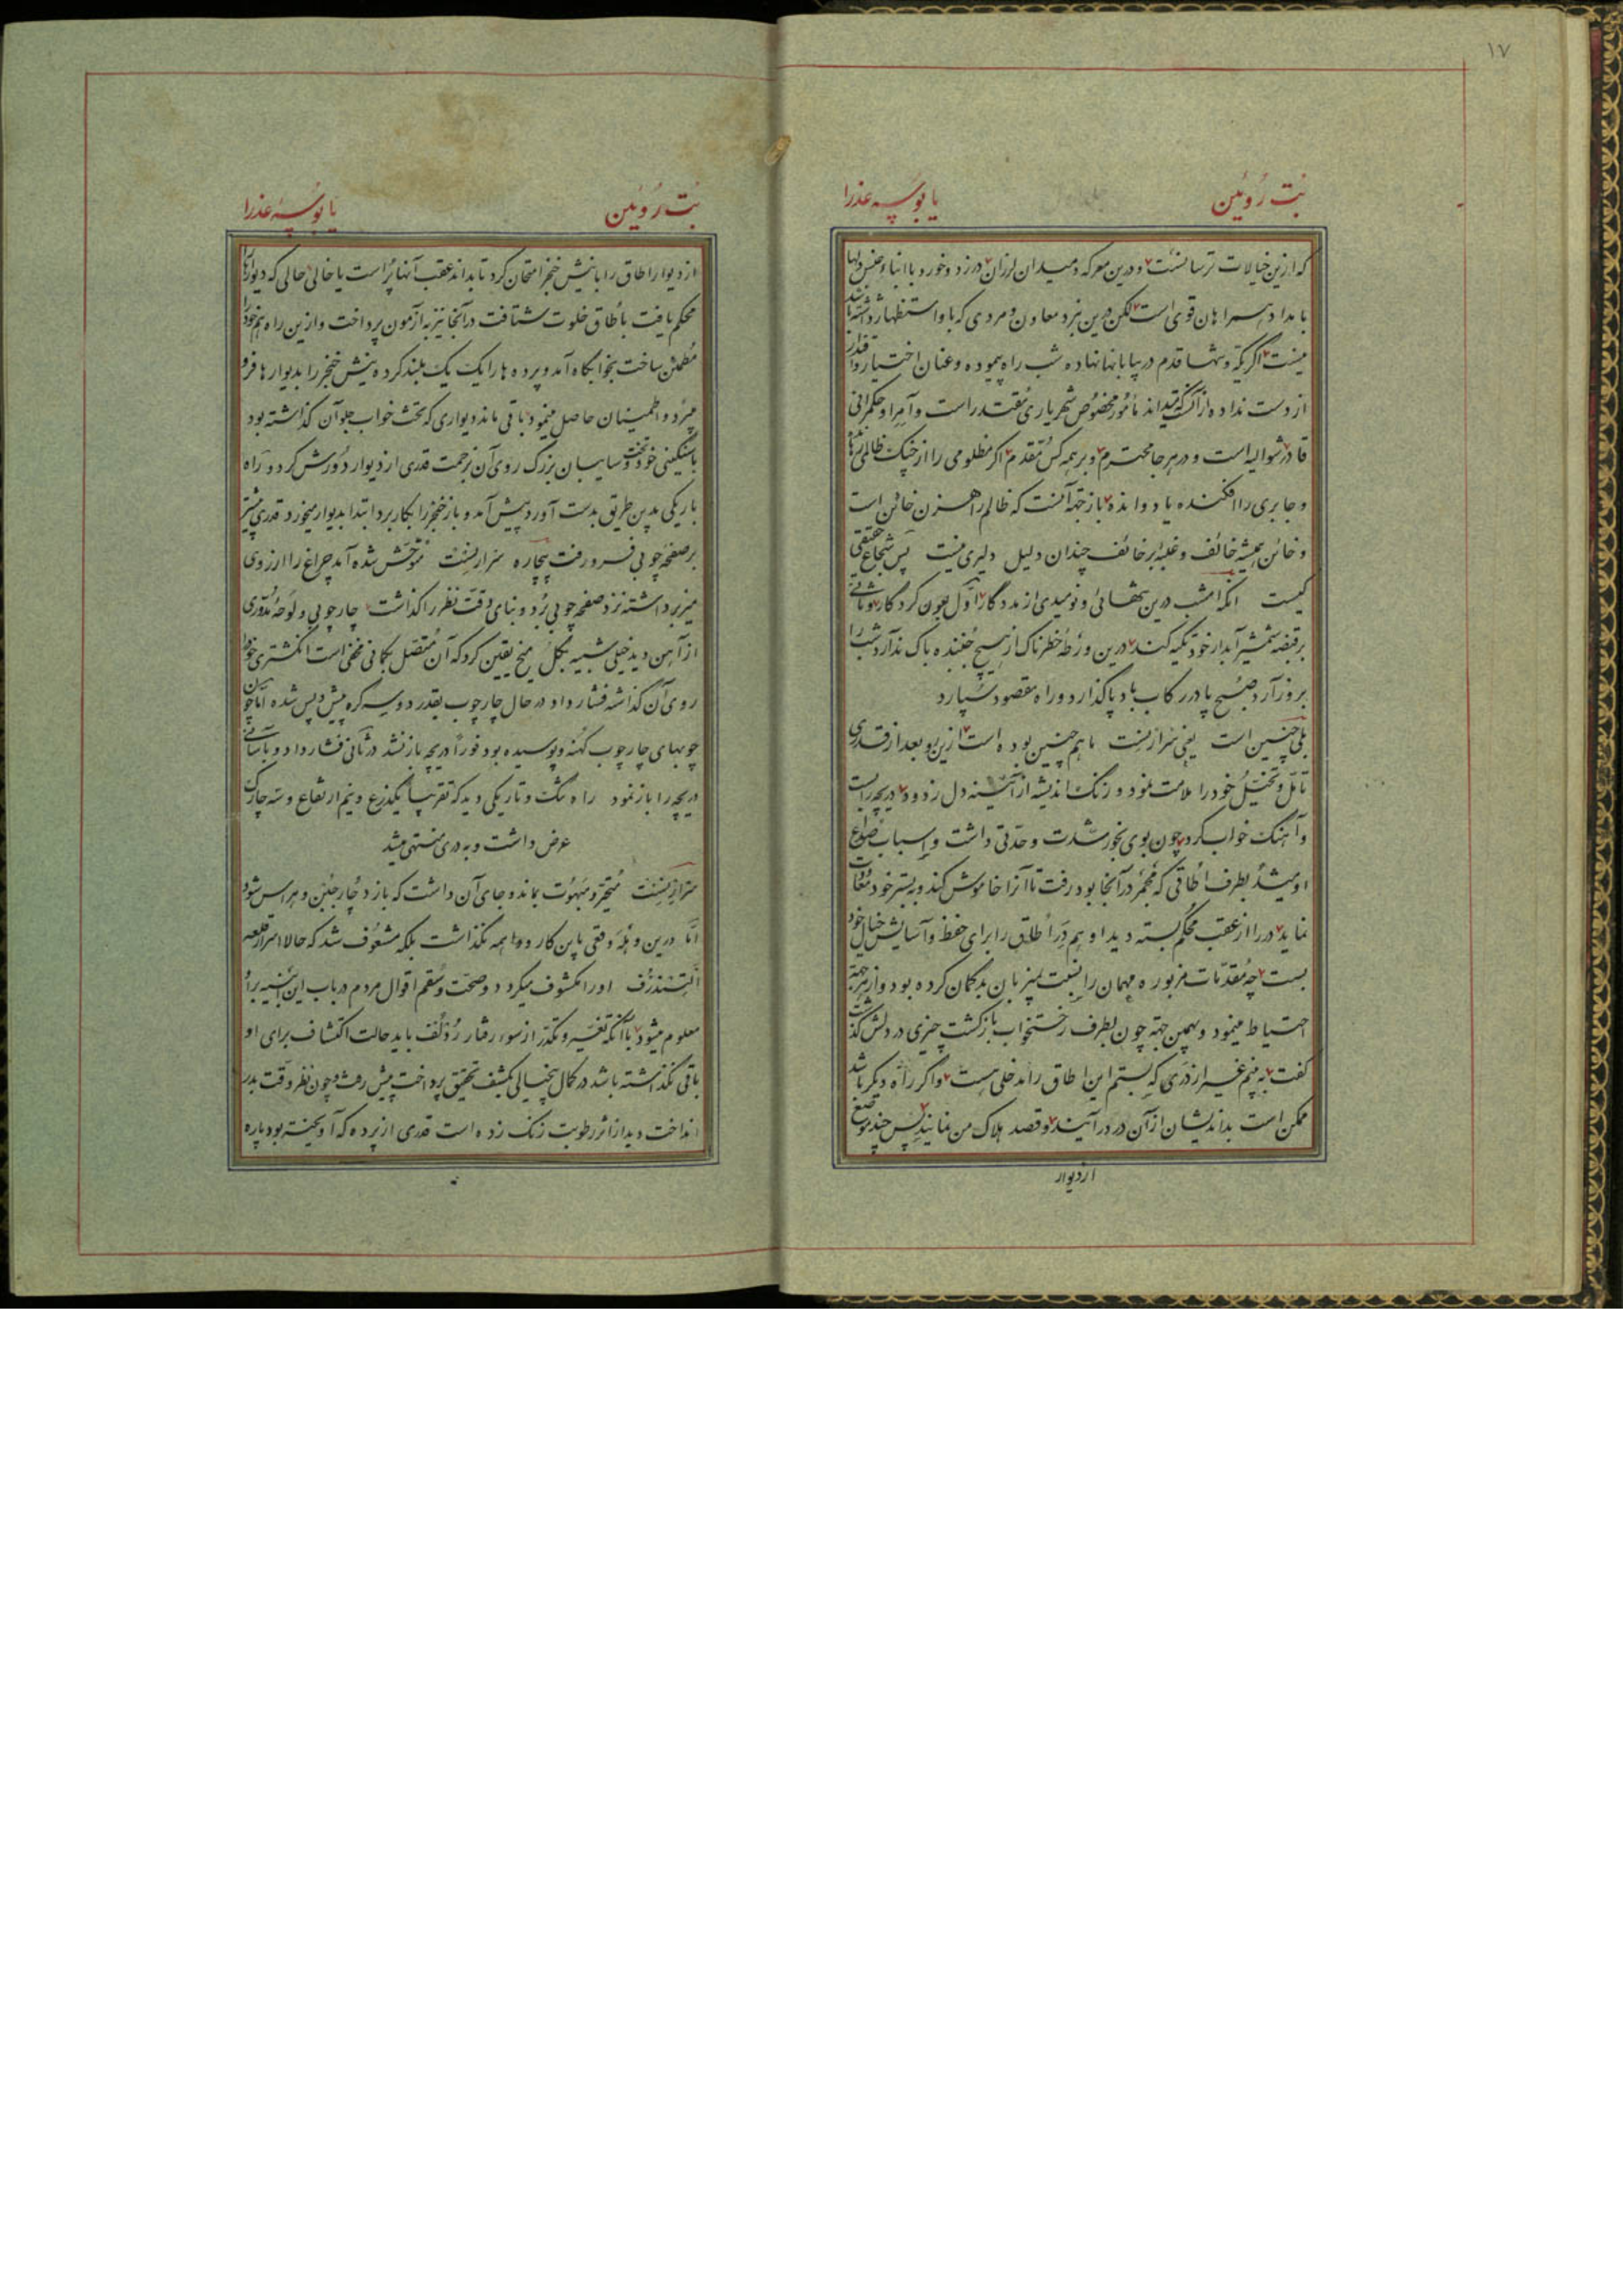 ۱۷
بُت رُوئین یا بوسهٔ عذرا
که ازین خیالات ترسا نست و درین معرکه و میدان لرزان در زد و خورد با ابناء جنس دلها
با مداد همراهان قوی است لکن درین نبرد معاون و مردی که باو استظهار داشته باشد
نیست اگر یکه و تنها قدم در بیابانها نهاده شب راه پیموده و عنان اختیار و اقتدار
از دست نداده از آنکه میداند مأمور مخصوص شهریاری مقتدر است و آمر او حکمرانی
قادر و در هر جا محترم و بر همه کس مقدم اگر مظلومی را از چنگ ظالمی
و جابری را افکنده یا دوانده باز جهة آنست که ظالم راهزن خائن است
و خائن همیشه خائف و غلبه بر خائف چندان دلیل دلیری نیست پس شجاع حقیقی
کیست آنکه امشب درین تنهائی و نومیدی از مددگار اول بعون کردگار و ثانی
بر قبضه شمشیر آبدار خود تکیه کند درین ورطهٔ خطرناک از هیچ جنبنده باک ندارد شب را
بروز آرد صبح پا در رکاب باد پا گذارد و راه مقصود سپارد
بلی چنین است یعنی باهم چنین بوده است ازین رو بعد از قدری
تأمّل و تخیّل خود را ملامت نمود و زنک اندیشه از آئینه دل زدود دریچه را بست
و آهنک خواب کرد چون بوی بخور شدت و حدّتی داشت و اسباب صداع
او میشد بطرف اطاقی که مجمر در آنجا بود رفت تا آنرا خاموش کند و به بستر خود
نماید در را از عقب محکم بسته دید او هم در اطاق را برای حفظ و آسایش خیال خود
بست چه مقدّمات مزبوره مهمان را نسبت بمیزبان بدگمان کرده بود و از هر جهة
احتیاط مینمود و بهمین جهة چون بطرف رختخواب بازگشت چیزی در دلش گذشت
گفت به بینم غیر از دری که بستم این اطاق را مدخلی هست و اگر راه دیگر باشد
ممکن است بداندیشان از آن در در آیند و قصد هلاک من نمایند پس چند موضع
از دیوار
بُت رُوئین یا بوسهٔ عذرا
از دیوار اطاق را با نیش خنجر امتحان کرد تا بداند عقب آنها پُر است یا خالی حالی که دیوارها
محکم یافت باطاق خلوت شتافت در آنجا نیز به آزمون پرداخت و ازین راه هم خود را
مطمئن ساخت بخوابگاه آمد و پرده ها را یک یک بلند کرده نیش خنجر را بدیوارها فرو
میبرد و اطمینان حاصل مینمود باقی ماند دیواری که تخت خواب جلو آن گذاشته بود
با سنگینی خود تخت و سایبان بزرک روی آن بزحمت قدری از دیوار دورش کرد و راه
باریکی بدین طریق بدست آورد پیش آمد و باز خنجر را بکار برد ابتدا بدیوار میخورد قدری بیشتر
بر صفحهٔ چوبی فرو رفت بیچاره متوحّش شده آمد چراغ را از روی
میز برداشته نزد صفحهٔ چوبی بُرد و بنای دقّت نظر را گذاشت چارچوبی و لوحهٔ مدوّری
از آهن دید خیلی شبیه بگل میخ یقین کرد که آن متصل بمکانی مخفی است انگشتری خود را
روی آن گذاشته فشار داد در حال چارچوب بقدر دو سه گره پیش و پس شده امّا چون
چوبهای چارچوب کهنه و پوسیده بود فوراً دریچه باز نشد در ثانی فشار داد و بآسانی
دریچه را باز نمود راه تنگ و تاریکی دید که تقریباً یکذرع و نیم ارتفاع و سه چارک
عرض داشت و به دری منتهی میشد
متحیّر و مبهوت بماند و جای آن داشت که باز دچار جُبن و هراس شود
امّا درین وهله وقعی باین کار و واهمه نگذاشت بلکه مشعوف شد که حالا اسرار قلعه
اورا مکشوف میگردد و صحّت و سقم اقوال مردم در باب این ابنیه بر او
معلوم میشود با آنکه تغییر و تکدّر از سوء رفتار رُدُلف باید حالت اکتشاف برای او
باقی نگذاشته باشد در کمال بیخیالی بکشف تحقیق پرداخت پیش رفت و چون نظر دقّت بدر
انداخت دید از اثر رطوبت زنک زده است قدری از پرده که آویخته بود پاره